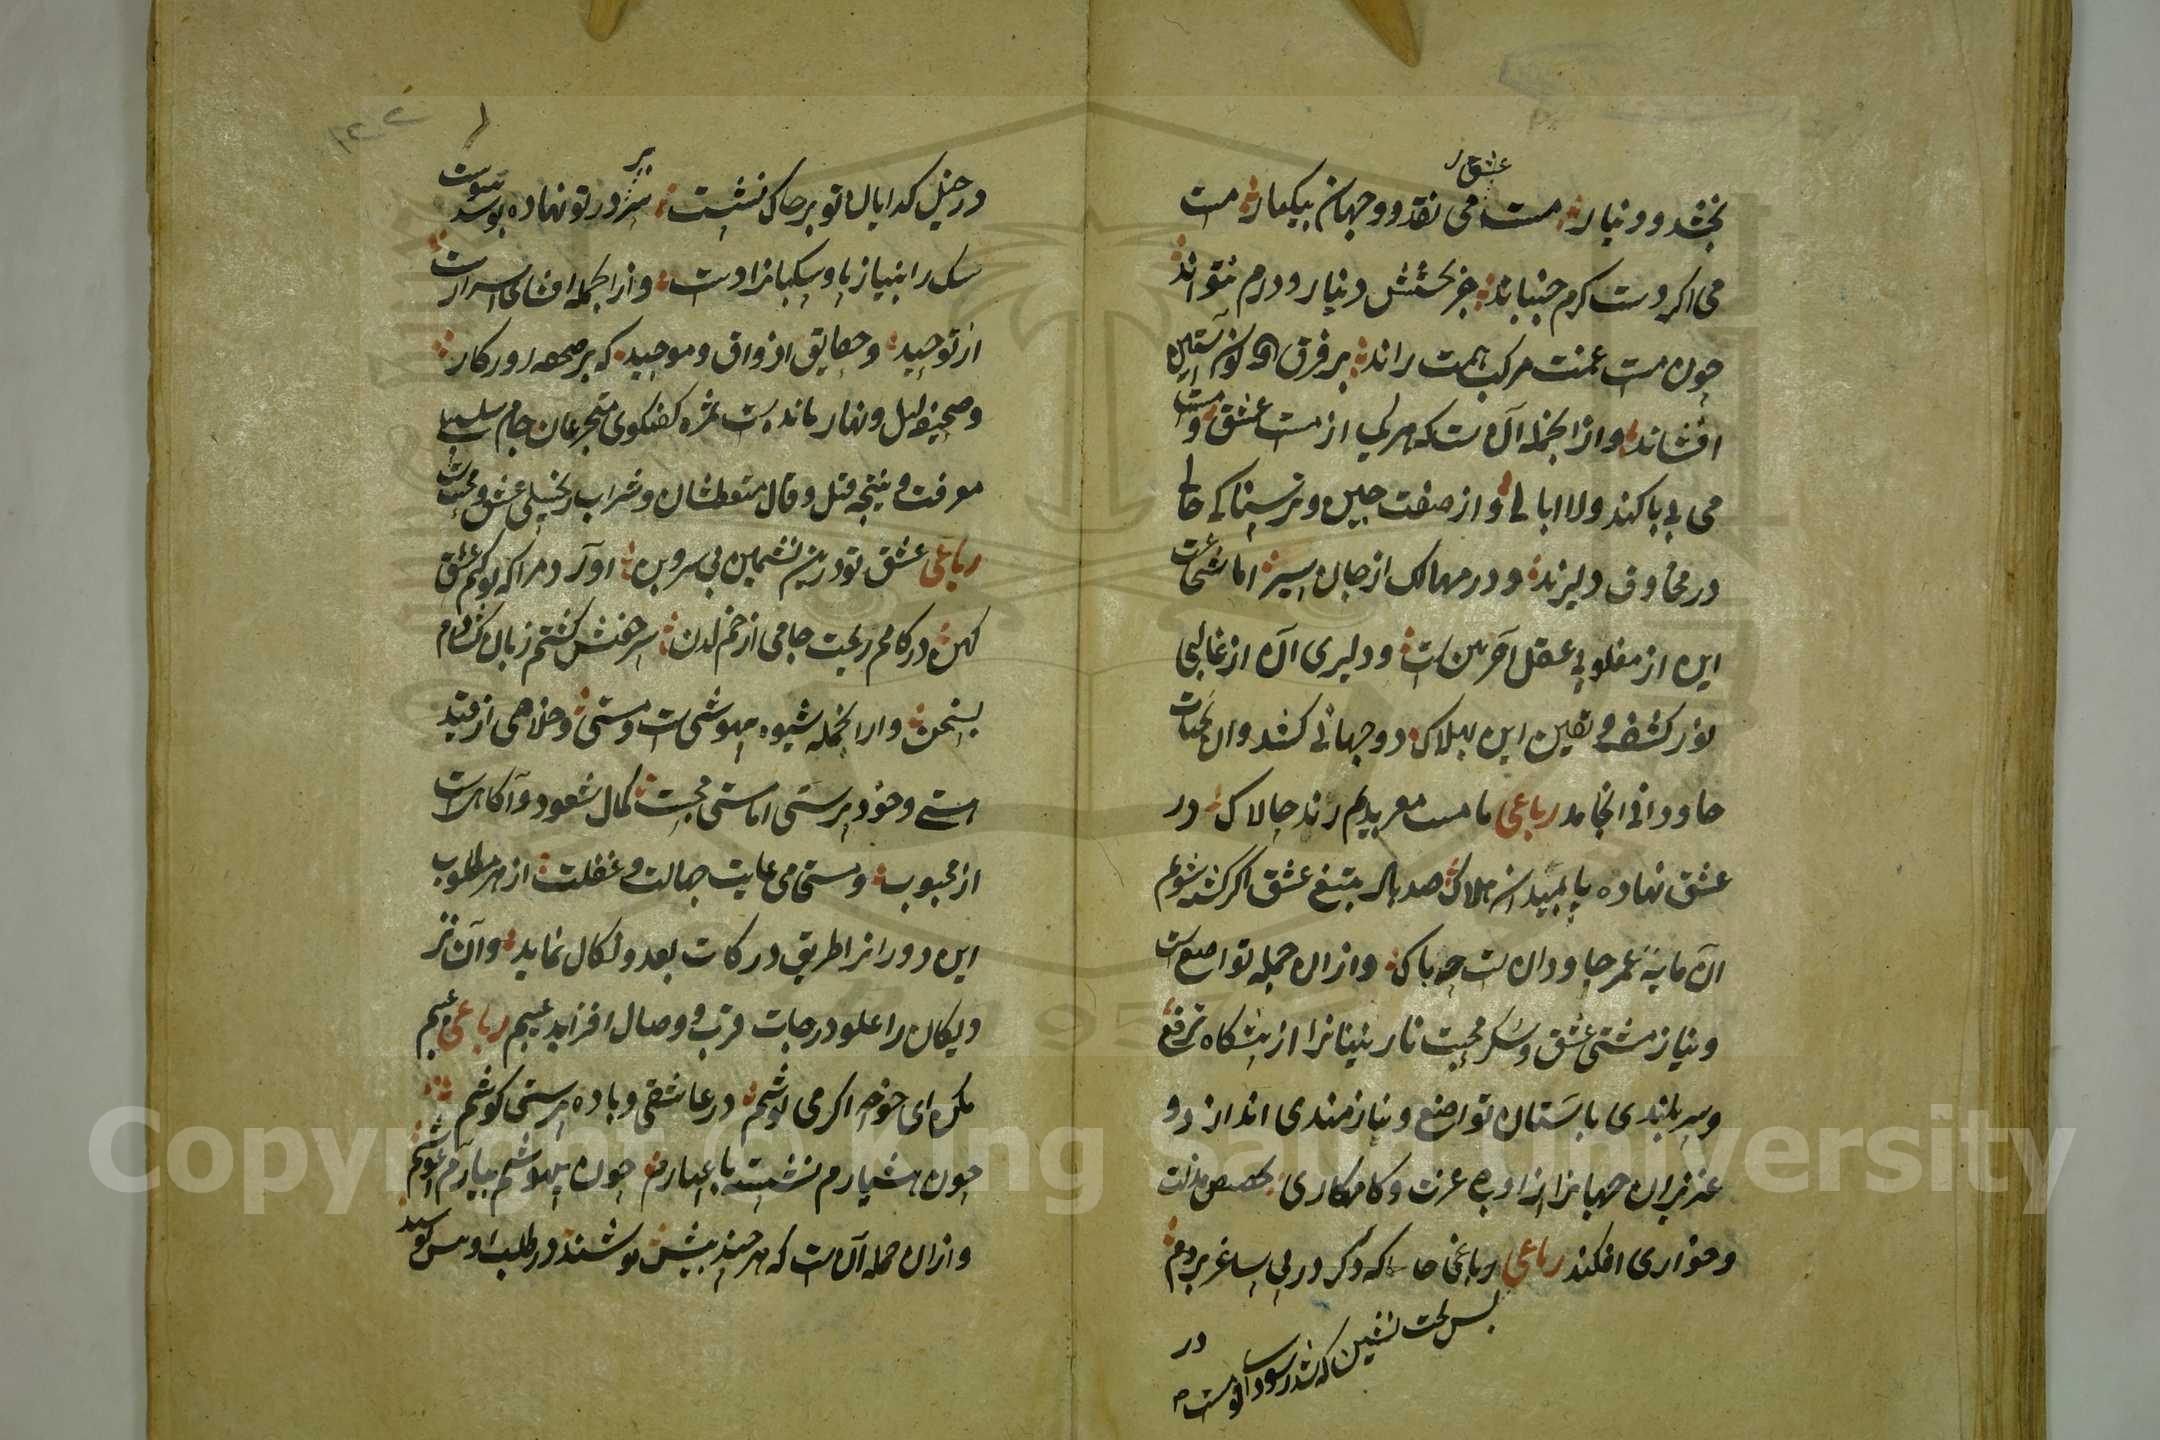 عشق
بخشد و دنیار مست می نقد دو جهان بیکبار مست
می اگر دست کرم جنباند جز بخشش دینار و درم نتواند
چون مست عمت مرکب همت راند بر فرق دو کون آستین
افشاند و از انجمله آن ست که هر یکی از مست عشق و مست
می بی باکند و لا ابالی و از صفت جبن و ترسناکی خالی
در مخاوف دلیرند و در مهالک از جان سیر اما شجاعت
این از مغلوبی عقل آخربین ست و دلیری آن از غالبی
نور کشف و یقین این بهلاک دو جهانی کشد و ان بحیات
جاودانی انجامد رباعی ما مست معربدیم رند چالاک در
عشق نهاده پا بمیدان هلاک صد بار بتیغ عشق اگر کشته شوم
آن مایه عمر جاودان ست چه باک و ازان جمله تواضع ست
و نیاز مستی عشق و سکر محبت نازنینانرا از پیشگاه ترفع
و سربلندی باستان تواضع و نیازمندی اندازد و
عزیزان جهانرا از اوج عزت و کامکاری بحضیض مذلت
و خواری افکند رباعی
بس تخت نشین که شد ز سودای تو مست
در
۱۲۲
در خیل کدایان تو بر خاک نشست سر بر در تو نهاده بوسد پیوست
سک را بنیاز پا و سکبانرا دست و از انجمله افشای اسرارست
از توحید و حقایق اذواق و مواجید که بر صحفه روزکار
و صحیفه لیل و نهار مانده ست ثمره کفتکوی متجرعان جام
معرفت و نتیجه قیل و قال متعطشان شراب زنجبیلی عشق و محبت
رباعی عشق تو درین نشیمن بی سر و بن آورد مرا که نو کنم عشق
کهن در کامم ریخت جامی از خم لدن سرخوش کشتم زبان کشادم
بسخن و از انجمله شیوه بیهوشی ست و مستی و خلاصی از قید
هستی و خود پرستی اما مستی محبت کمال شعور و آکاهیست
از محبوب و مستی می غایت جهالت و غفلت از هر مطلوب
این دورانرا طریق درکات بعد و نکال نماید و آن نز
دیکان را علو درجات قرب و وصال افزاید رباعی عیبم
مکن ای خواجه اگر می نوشم در عاشقی و باده پرستی کوشم
چون هشیارم نشسته با اغیارم چون بیهوشم بیارم هم آغوشم
و ازان جمله آن ست که هر چند بیش نوشند در طلب او بیش کوشند